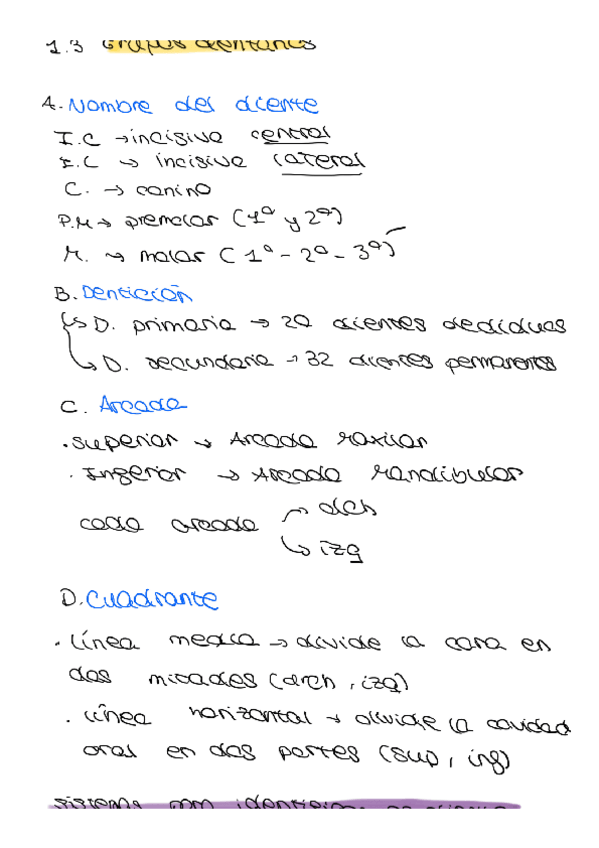 1.3 Grupos dentarios
A. Nombre del diente
I.C → incisivo central
I.L → incisivo lateral
C. → canino
P.M → premolar (1º y 2º)
M. → molar (1º - 2º - 3º)
B. Dentición
↳ D. primaria → 20 dientes decíduos
↳ D. secundaria → 32 dientes permanentes
C. Arcada
. Superior → Arcada Maxilar
. Inferior → Arcada Mandibular
cada arcada → dch
↳ izq
D. Cuadrante
. Línea media → divide la cara en
dos mitades (drch, izq)
. Línea horizontal → divide la cavidad
oral en dos partes (sup, inf)
sistema